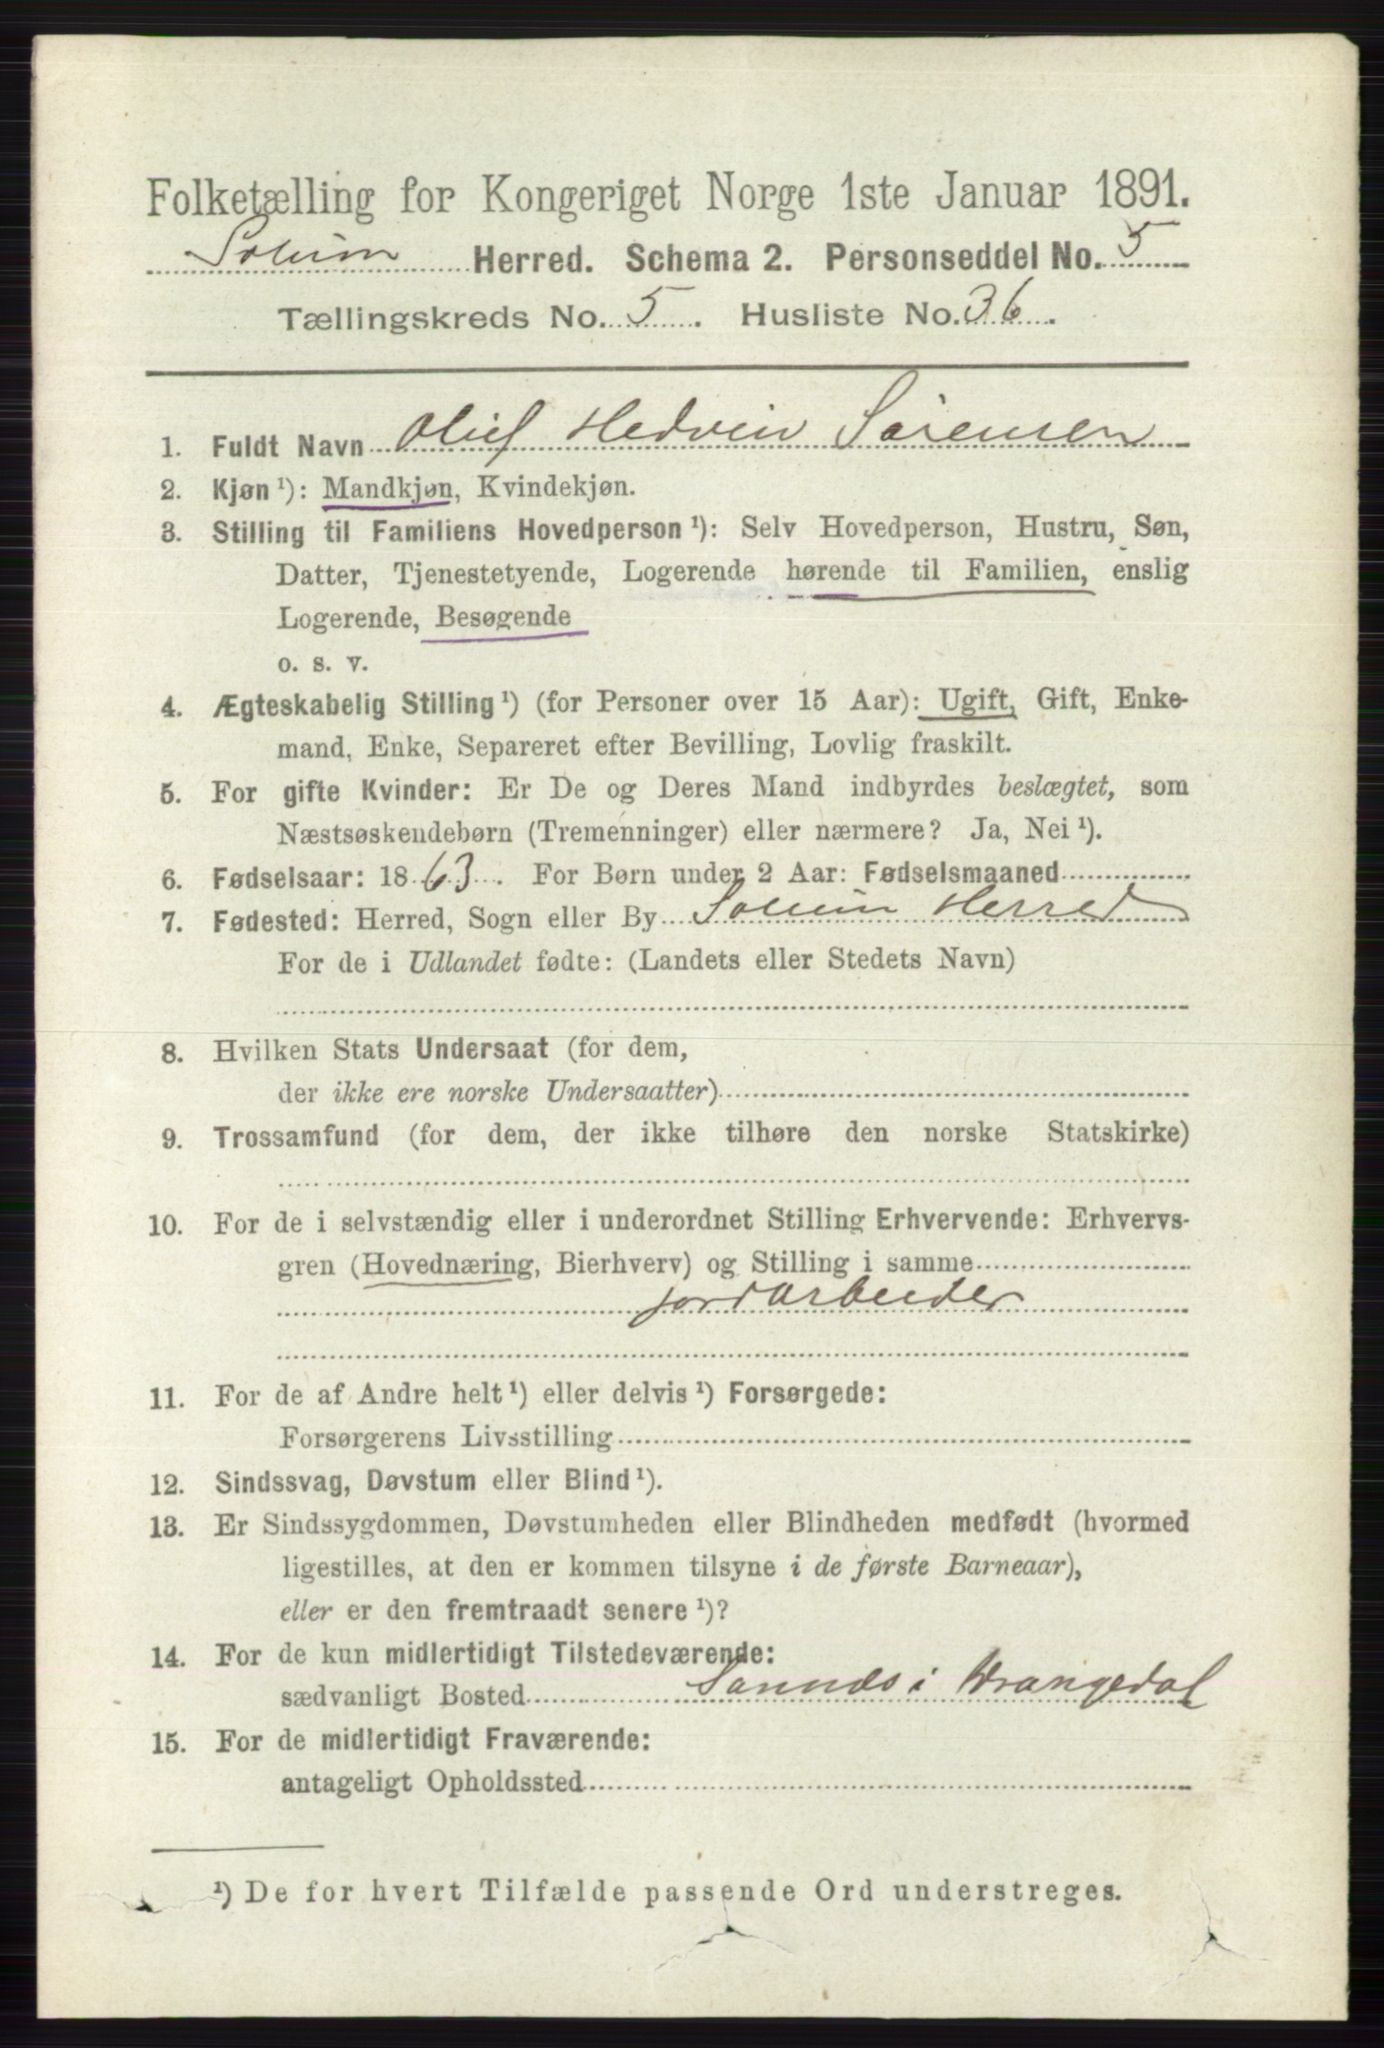 Folketælling for Kongeriget Norge 1ste Januar 1891.
Solum Herred. Schema 2. Personseddel No. 5
Tællingskreds No. 5. Husliste No. 36.
1. Fuldt Navn Oluf Hedvin Sørensen
2. Kjøn ¹): Mandkjøn, Kvindekjøn.
3. Stilling til Familiens Hovedperson ¹): Selv Hovedperson, Hustru, Søn,
Datter, Tjenestetyende, Logerende hørende til Familien, enslig
Logerende, Besøgende
o. s. v.
4. Ægteskabelig Stilling ¹) (for Personer over 15 Aar): Ugift, Gift, Enke-
mand, Enke, Separeret efter Bevilling, Lovlig fraskilt.
5. For gifte Kvinder: Er De og Deres Mand indbyrdes beslægtet, som
Næstsøskendebørn (Tremenninger) eller nærmere? Ja, Nei ¹).
6. Fødselsaar: 1863. For Børn under 2 Aar: Fødselsmaaned
7. Fødested: Herred, Sogn eller By Solum Herred
For de i Udlandet fødte: (Landets eller Stedets Navn)
8. Hvilken Stats Undersaat (for dem,
der ikke ere norske Undersaatter)
9. Trossamfund (for dem, der ikke tilhøre den norske Statskirke)
10. For de i selvstændig eller i underordnet Stilling Erhvervende: Erhvervs-
gren (Hovednæring, Bierhverv) og Stilling i samme
jordarbeider
11. For de af Andre helt ¹) eller delvis ¹) Forsørgede:
Forsørgerens Livsstilling
12. Sindssvag, Døvstum eller Blind ¹).
13. Er Sindssygdommen, Døvstumheden eller Blindheden medfødt (hvormed
ligestilles, at den er kommen tilsyne i de første Barneaar),
eller er den fremtraadt senere ¹)?
14. For de kun midlertidigt Tilstedeværende:
sædvanligt Bosted Sannes i Drangedal
15. For de midlertidigt Fraværende:
antageligt Opholdssted
¹) De for hvert Tilfælde passende Ord understreges.